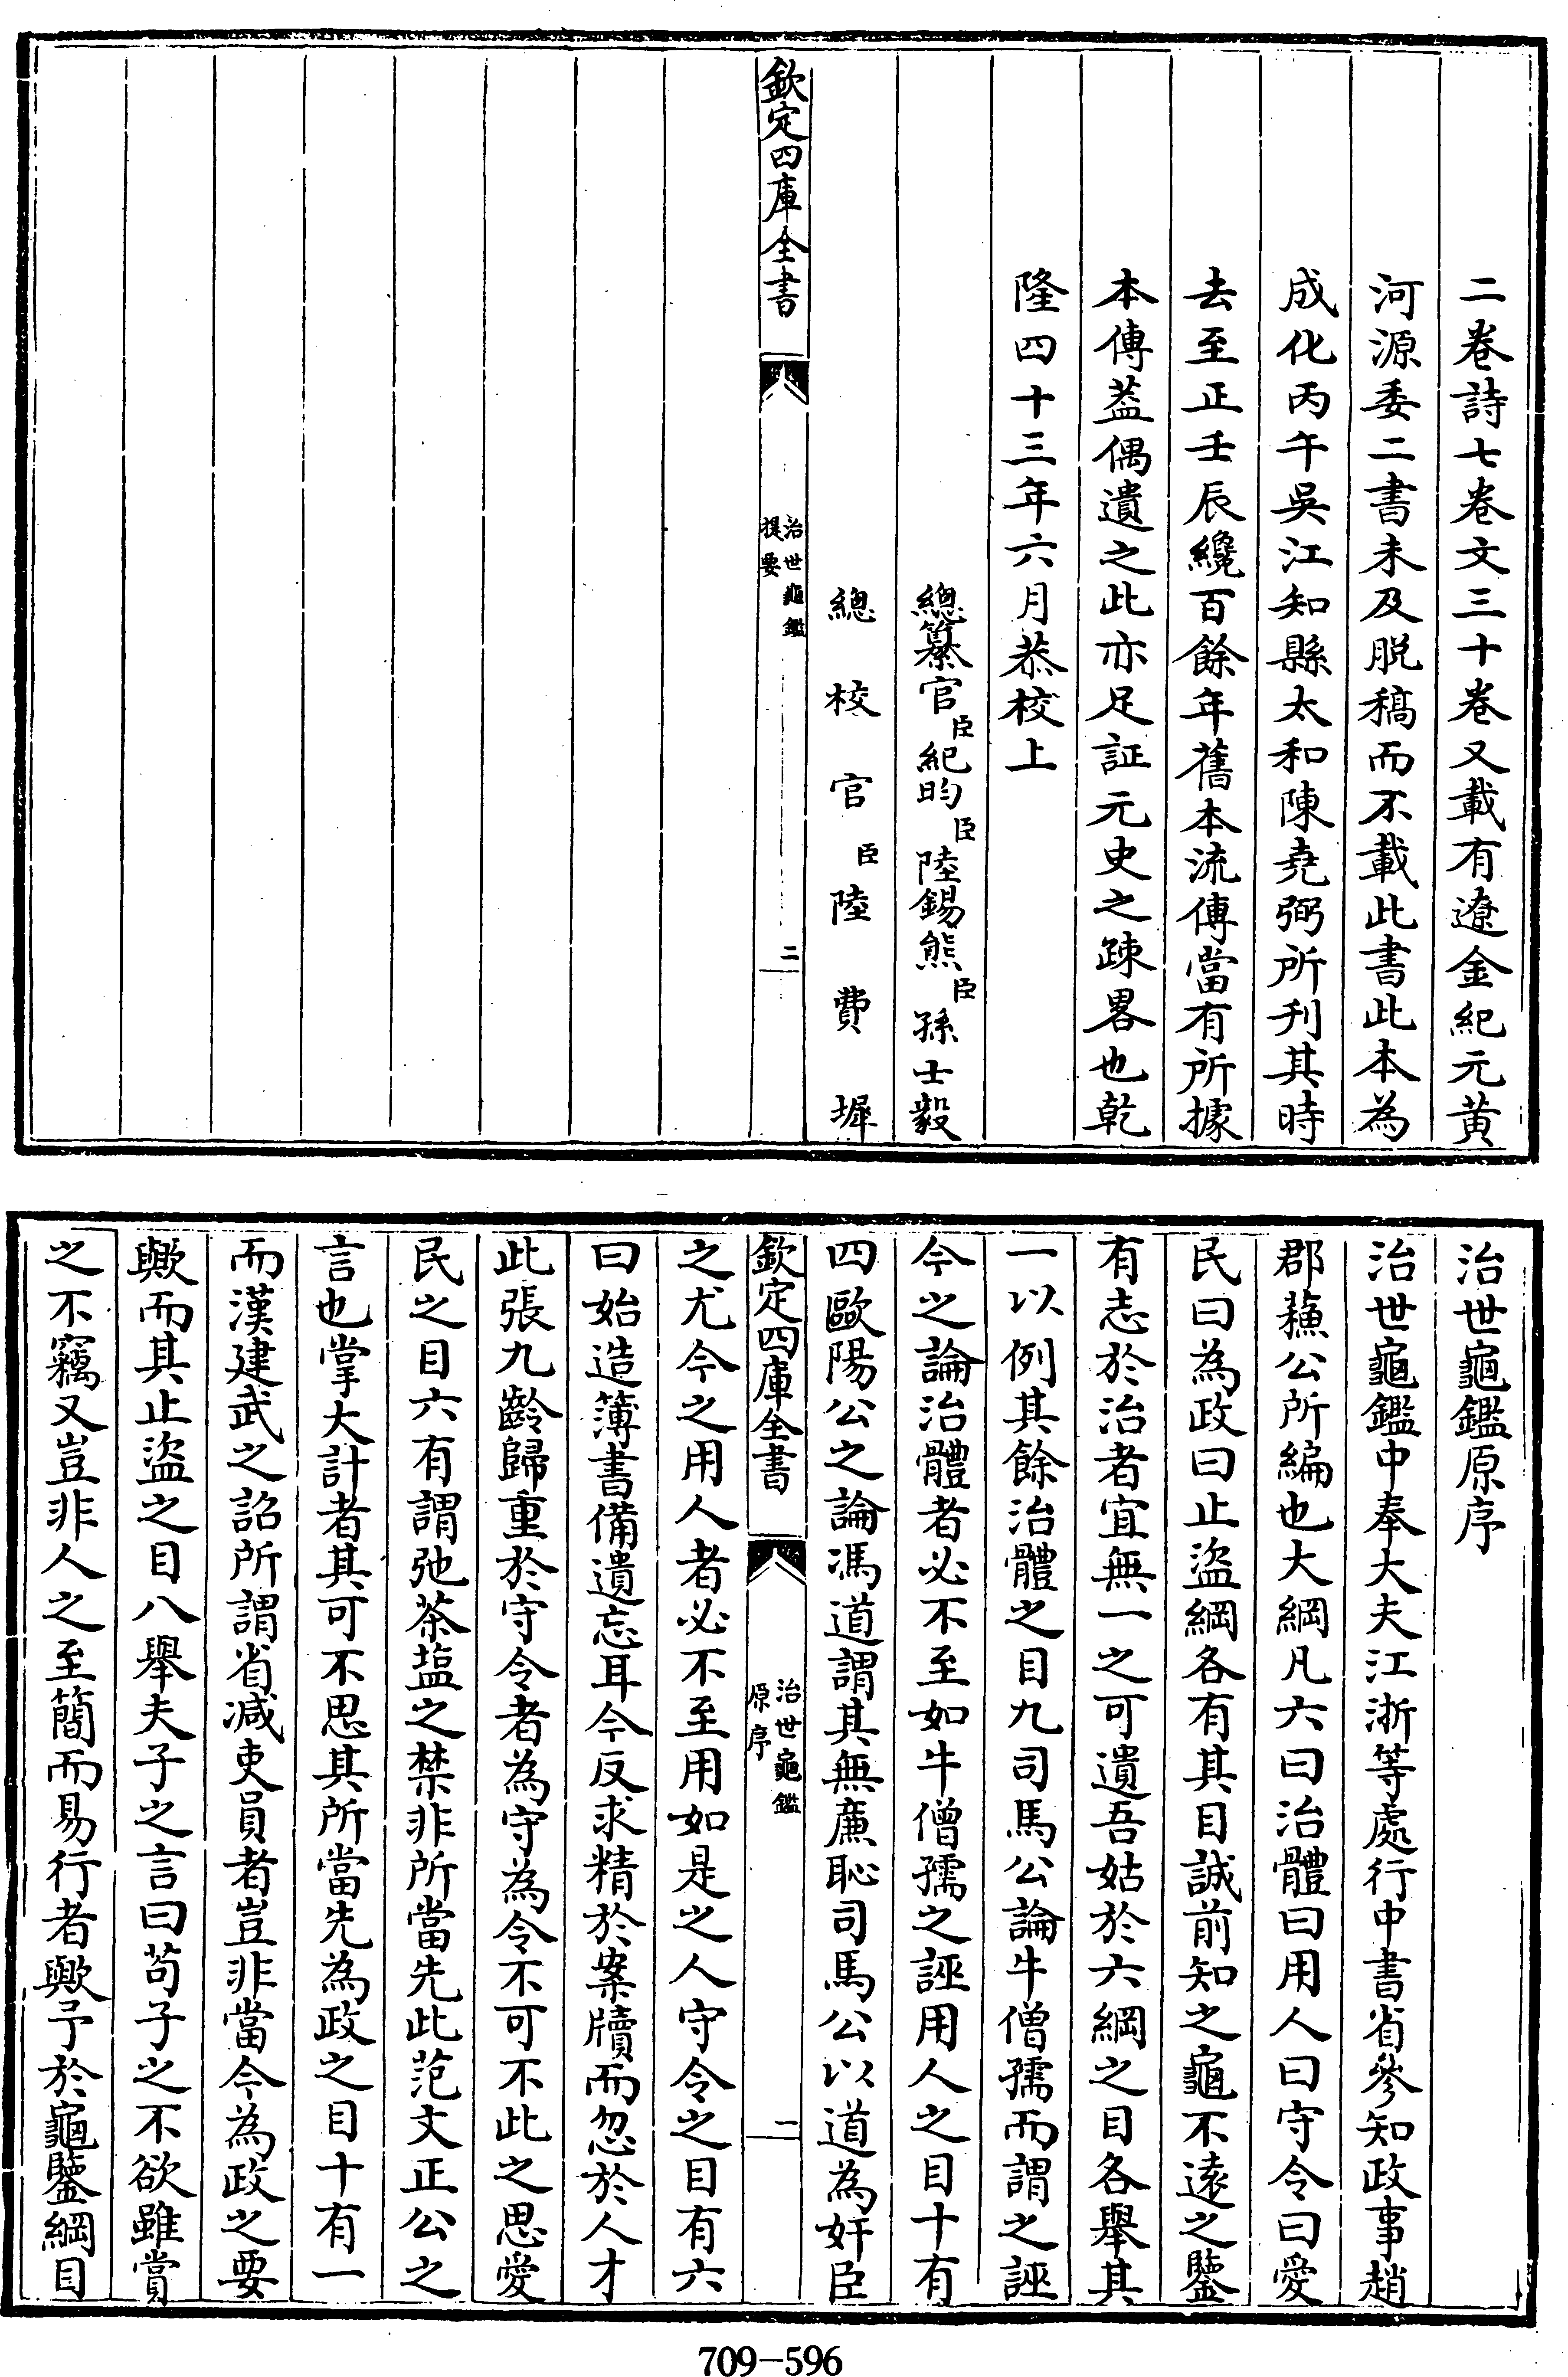 二卷詩七卷文三十卷又載有遼金紀元黃
河源委二書未及脱稿而不載此書此本為
成化丙午吳江知縣太和陳堯弼所刊其時
去至正壬辰纔百餘年舊本流傳當有所據
本傳葢偶遺之此亦足証元史之踈畧也乾
隆四十三年六月恭校上
總纂官臣紀昀臣陸錫熊臣孫士毅
總校官臣陸費墀
欽定四庫全書
治世龜鑑
提要
二
治世龜鑑原序
治世龜鑑中奉大夫江浙等處行中書省參知政事趙
郡蘓公所編也大綱凡六曰治體曰用人曰守令曰愛
民曰為政曰止盜綱各有其目誠前知之龜不遠之鑒
有志於治者宜無一之可遺吾姑於六綱之目各舉其
一以例其餘治體之目九司馬公論牛僧孺而謂之誣
今之論治體者必不至如牛僧孺之誣用人之目十有
四歐陽公之論馮道謂其無廉恥司馬公以道為奸臣
欽定四庫全書
治世龜鑑
原序
一
之尤今之用人者必不至用如是之人守令之目有六
曰始造簿書備遺忘耳今反求精於案牘而忽於人才
此張九齡歸重於守令者為守為令不可不此之思愛
民之目六有謂弛茶塩之禁非所當先此范文正公之
言也掌大計者其可不思其所當先為政之目十有一
而漢建武之詔所謂省减吏員者豈非當今為政之要
歟而其止盜之目八舉夫子之言曰苟子之不欲雖賞
之不竊又豈非人之至簡而易行者歟予於龜鑒綱目
709-596